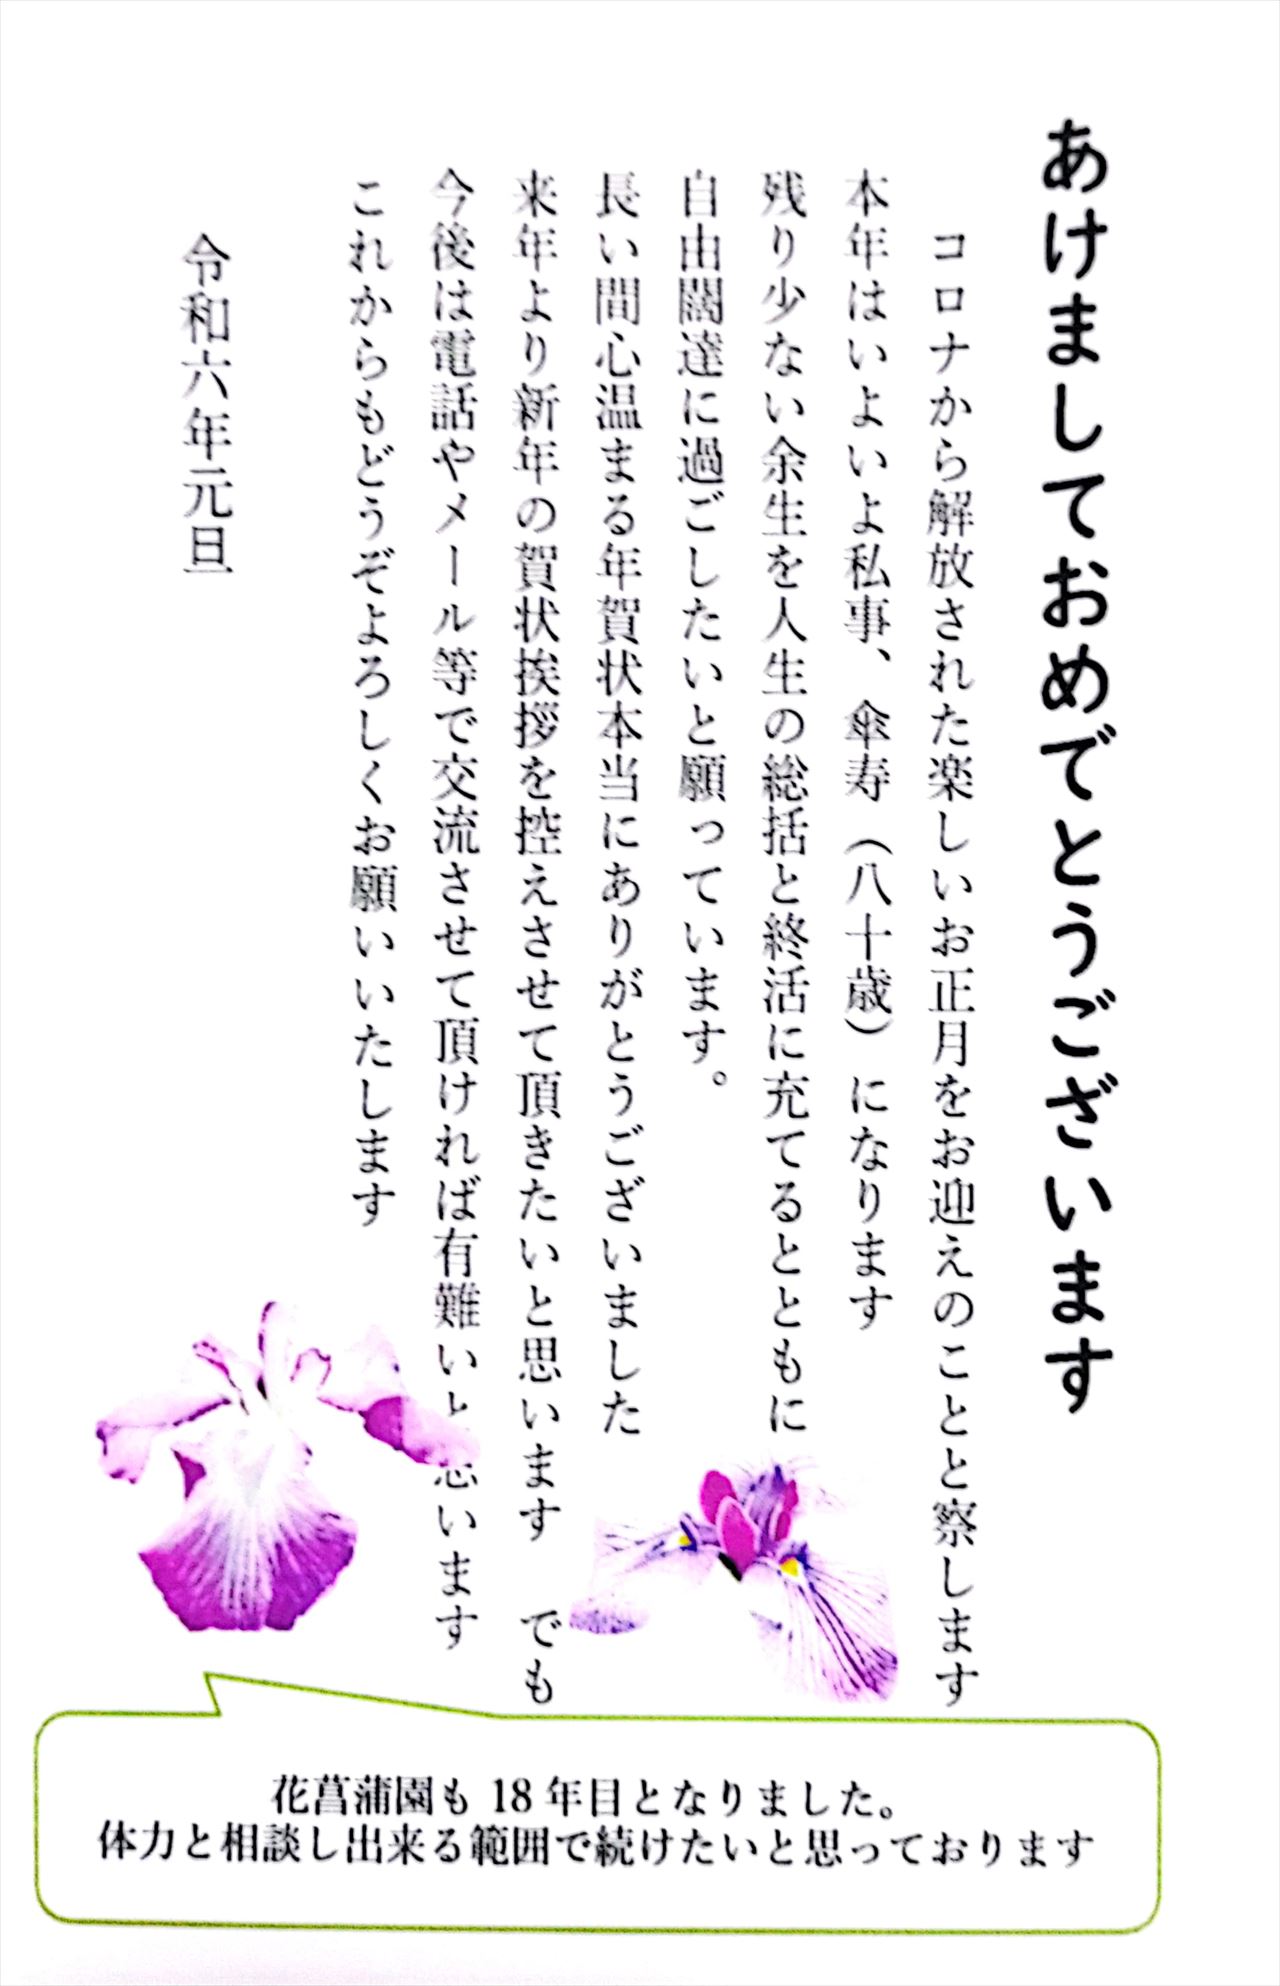 あけましておめでとうございます
コロナから解放された楽しいお正月をお迎えのことと察します
本年はいよいよ私事、傘寿（八十歳）になります
残り少ない余生を人生の総括と終活に充てるとともに
自由闊達に過ごしたいと願っています。
長い間心温まる年賀状本当にありがとうございました
来年より新年の賀状挨拶を控えさせて頂きたいと思います　でも
今後は電話やメール等で交流させて頂ければ有難いと思います
これからもどうぞよろしくお願いいたします
令和六年元旦
花菖蒲園も 18 年目となりました。
体力と相談し出来る範囲で続けたいと思っております